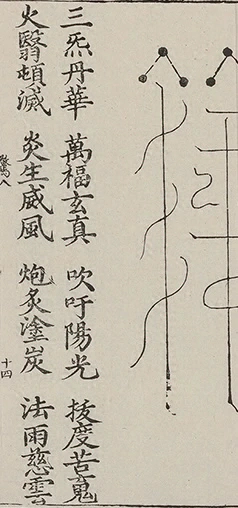 三炁丹華 萬福玄真 吹吁陽光 拔度苦䰟
火翳頓滅 炎生威風 炮炙塗炭 法雨慈雲
驚八 十四